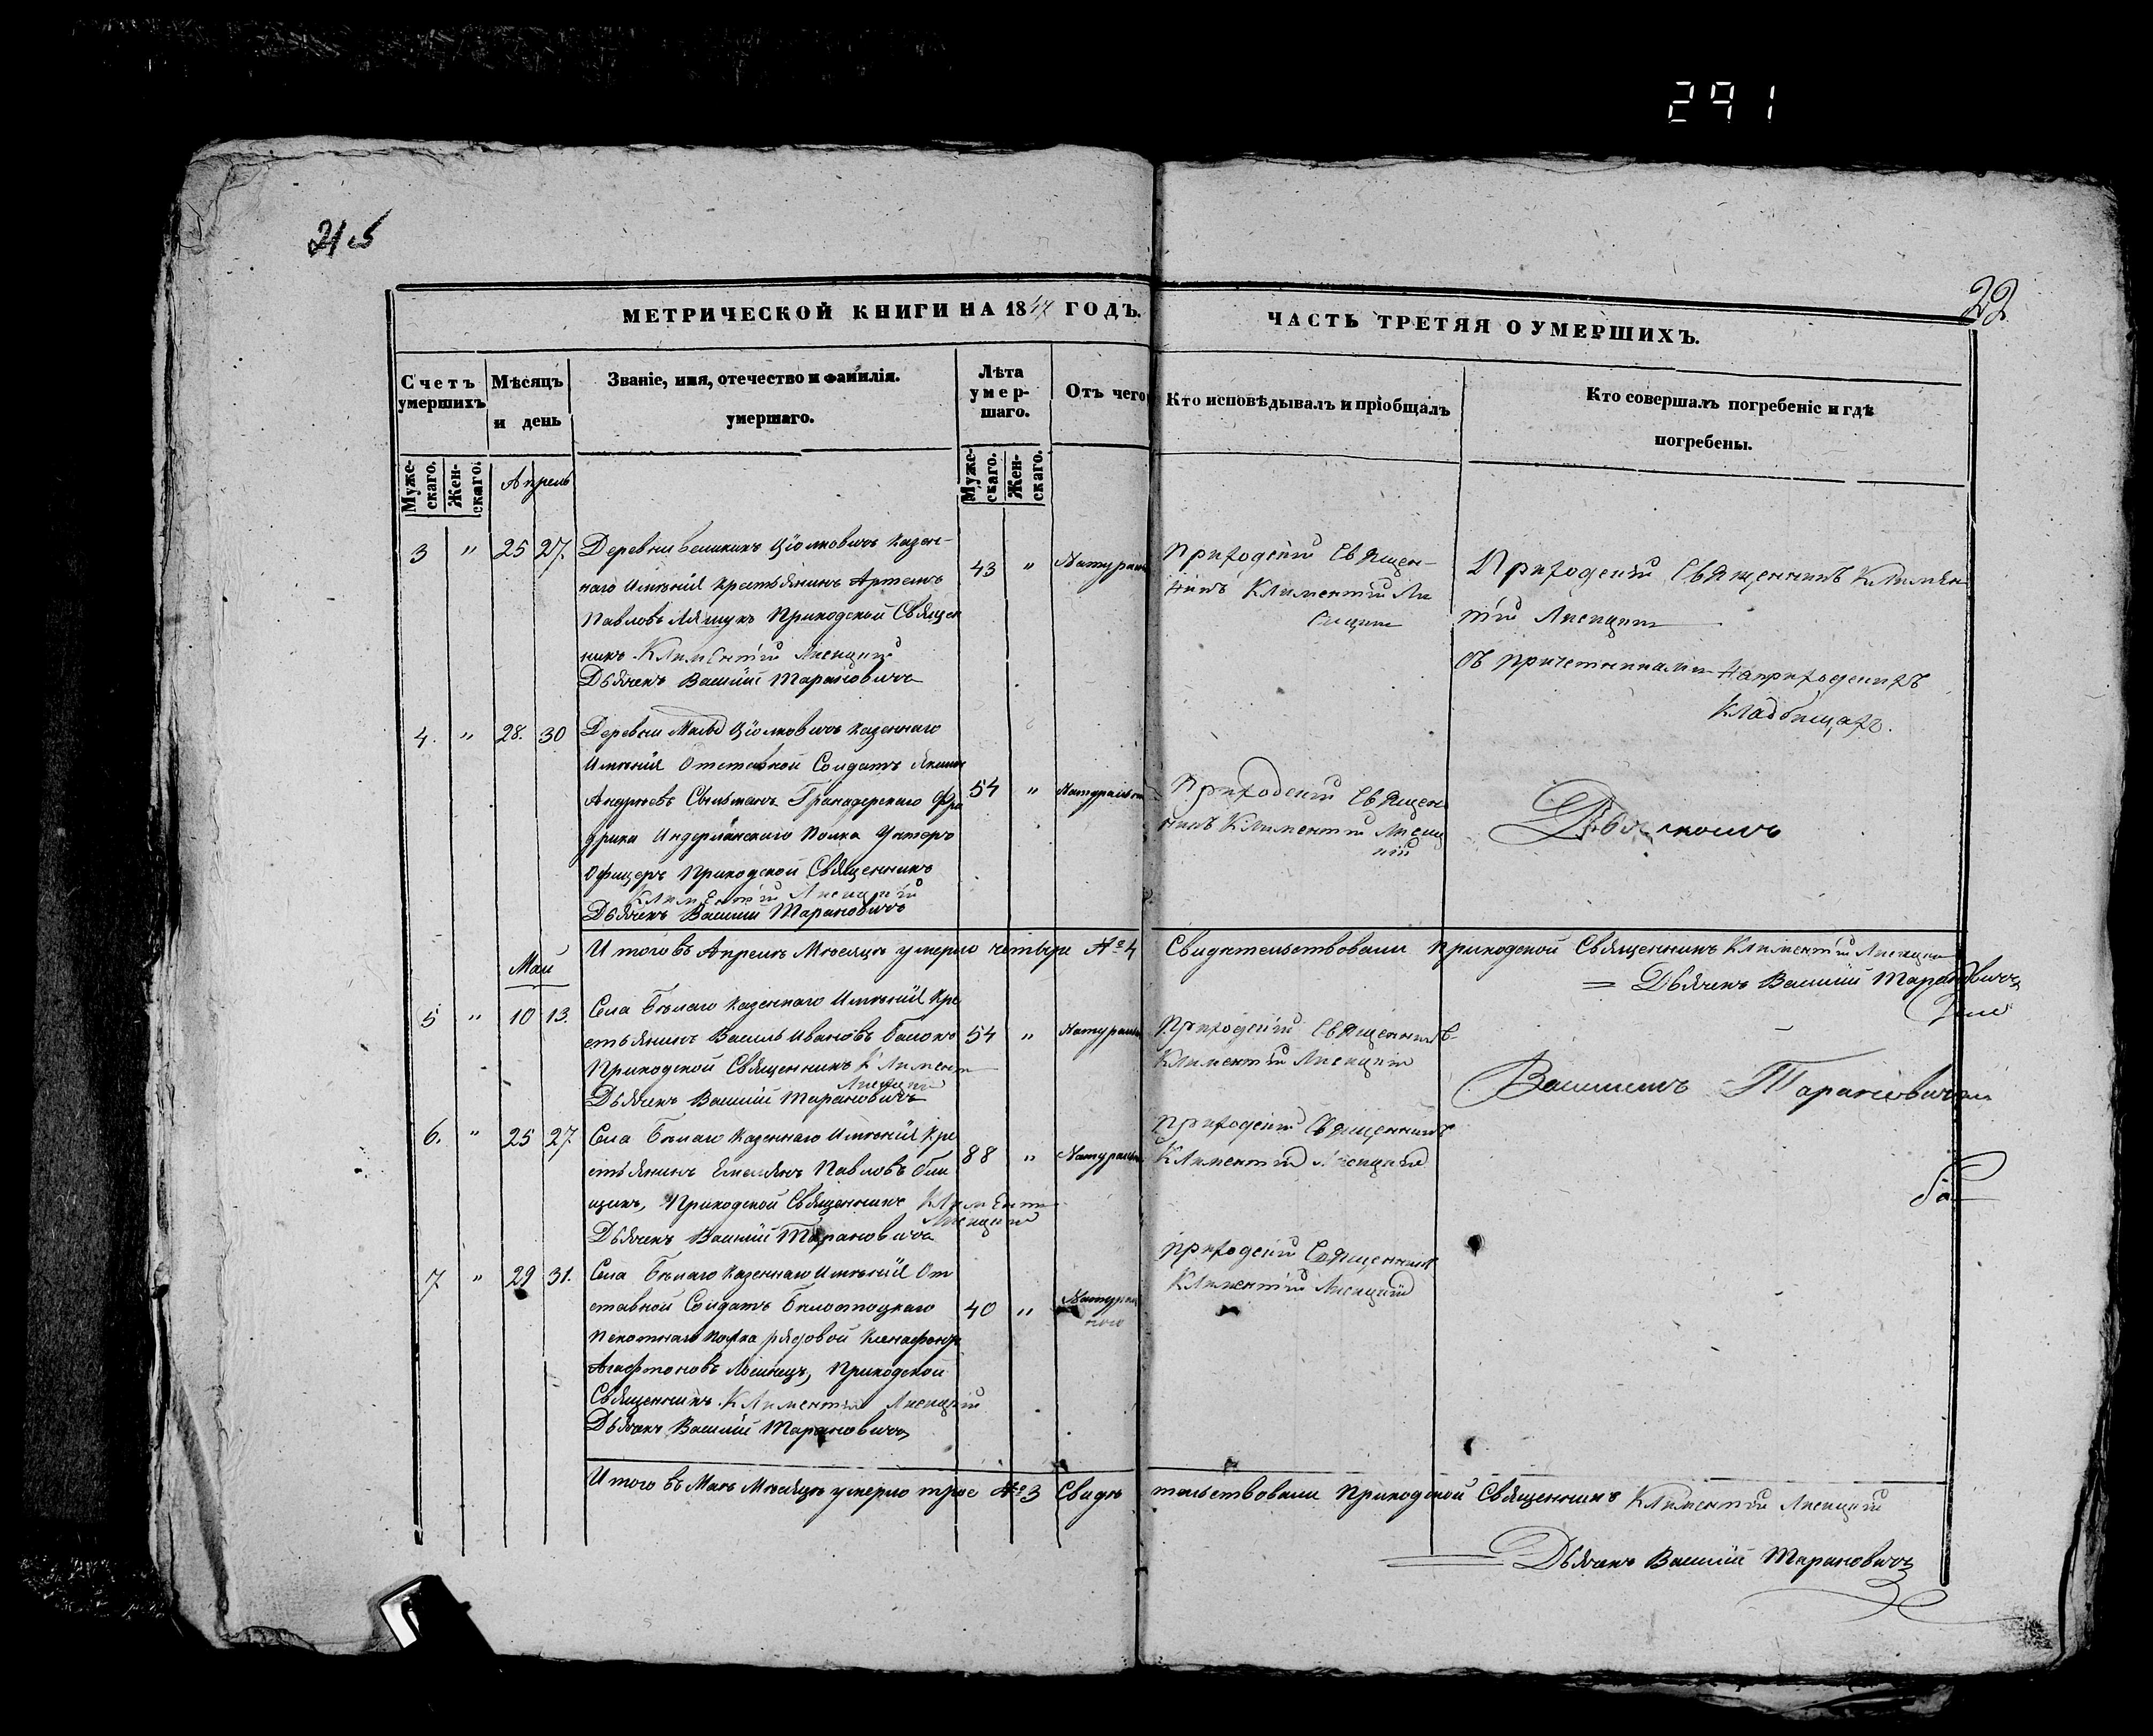 291
215
22
МЕТРИЧЕСКОЙ КНИГИ НА 1847 ГОДЪ.
ЧАСТЬ ТРЕТЯЯ О УМЕРШИХЪ.
Счетъ умершихъ
Мѣсяцъ и день
Званіе, имя, отечество и фамилія. умершаго.
Лѣта умер-шаго.
Отъ чего
Кто исповѣдывалъ и пріобщалъ
Кто совершалъ погребеніе и гдѣ погребены.
Муже-скаго.
Жен-скаго.
Муже-скаго.
Жен-скаго.
Апрель
3 " 25 27.
Деревни Великихъ Цїолковичъ казен-
наго Имѣнія Крестьянинъ Артемъ
Павловъ Ляшукъ Приходской Священ
никъ Климентій Лисицкій
Дьячекъ Василій Тарановичъ
43 "
Натурал
Приходскій Священ-
никъ Климентій Ли
сицкій
Приходскій Священникъ Климен
тій Лисицкій
съ причетниками на приходскихъ
кладбищахъ.
4. " 28. 30
Деревни Малы Цїолковичъ казеннаго
Имѣнія Отставной Солдатъ
Андреевъ Гранадерскаго Фри
дриха Полка Унтеръ
Офицеръ Приходской Священникъ
Климентій Лисицкій
Дьячекъ Василій Тарановичъ
54 "
Натуральн
Приходскій Священ
никъ Климентій Лисиц
кій
Дьячкомъ
Итого въ Апрелѣ Мѣсяцѣ умерло четыре № 4 Свидѣтельствовали Приходской Священникъ Климентій Лисицкій
Дьячекъ Василій Тарановичъ
Май
5 " 10 13.
Села Бѣлаго казеннаго Имѣнія Кре
стьянинъ Василь Ивановъ
Приходской Священникъ Климент
Лисицкій
Дьячекъ Василій Тарановичъ
54 "
Натуральн
Приходскій Священникъ
Климентій Лисицкій
Василіемъ Тарановичемъ
6. " 25 27.
Села Бѣлаго казеннаго Имѣнія Кре
стьянинъ Емельянъ Павловъ
Приходской Священникъ Климент
Лисицкій
Дьячекъ Василій Тарановичъ
88 "
Натуральн
Приходскій Священникъ
Климентій Лисицкій
7 " 29 31.
Села Бѣлаго казеннаго Имѣнія От
ставной Солдатъ Бѣлостоцкаго
Пехотнаго Полка рядовой
Приходской
Священникъ Климентій Лисицкій
Дьячекъ Василій Тарановичъ
40 "
Натурал
ного
Приходскій Священникъ
Климентій Лисицкій
Итого въ Маѣ Мѣсяцѣ умерло трое № 3 Свидѣтельствовали Приходской Священникъ Климентій Лисицкій
Дьячекъ Василій Тарановичъ